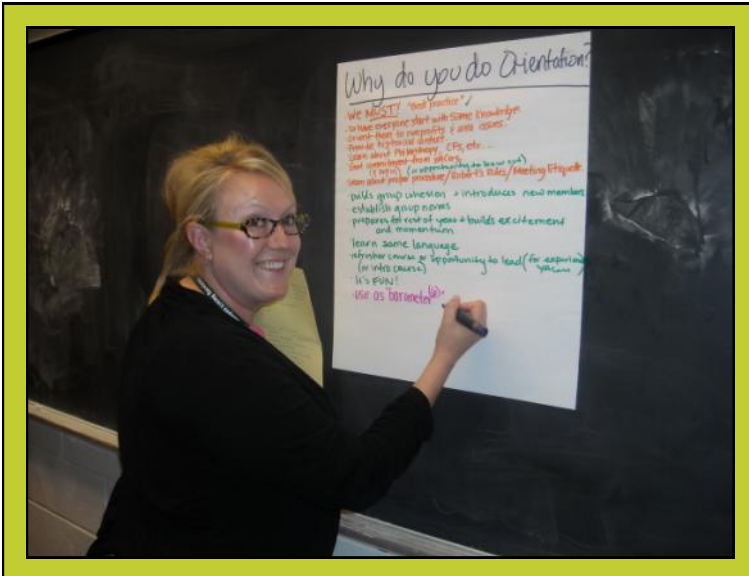 Why do you do Orientation?
WE MUST! "best practice" ✓
· to have everyone start with same knowledge
· orient them to nonprofits & area issues.
· Provide historical context
· Learn about Philanthropy, CFs, etc...
· Get commitment from YACers
(& sign in) (or opportunity to bow out)
· Learn about proper procedure/Robert's Rules/Meeting Etiquette
· builds group cohesion + introduces new members
· establish group norms
· prepares for rest of year + builds excitement
and momentum
· learn same language
· refresher course or opportunity to lead (for experienced
(or intro course) YACers)
· It's FUN!
· use as barometer